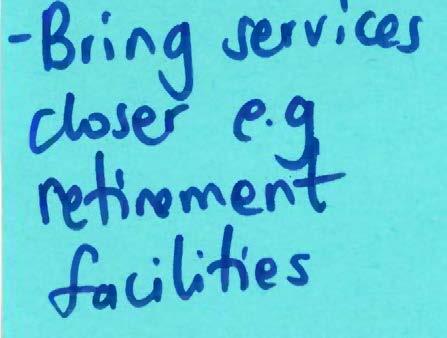 -Bring services
closer e.g
retirement
facilities